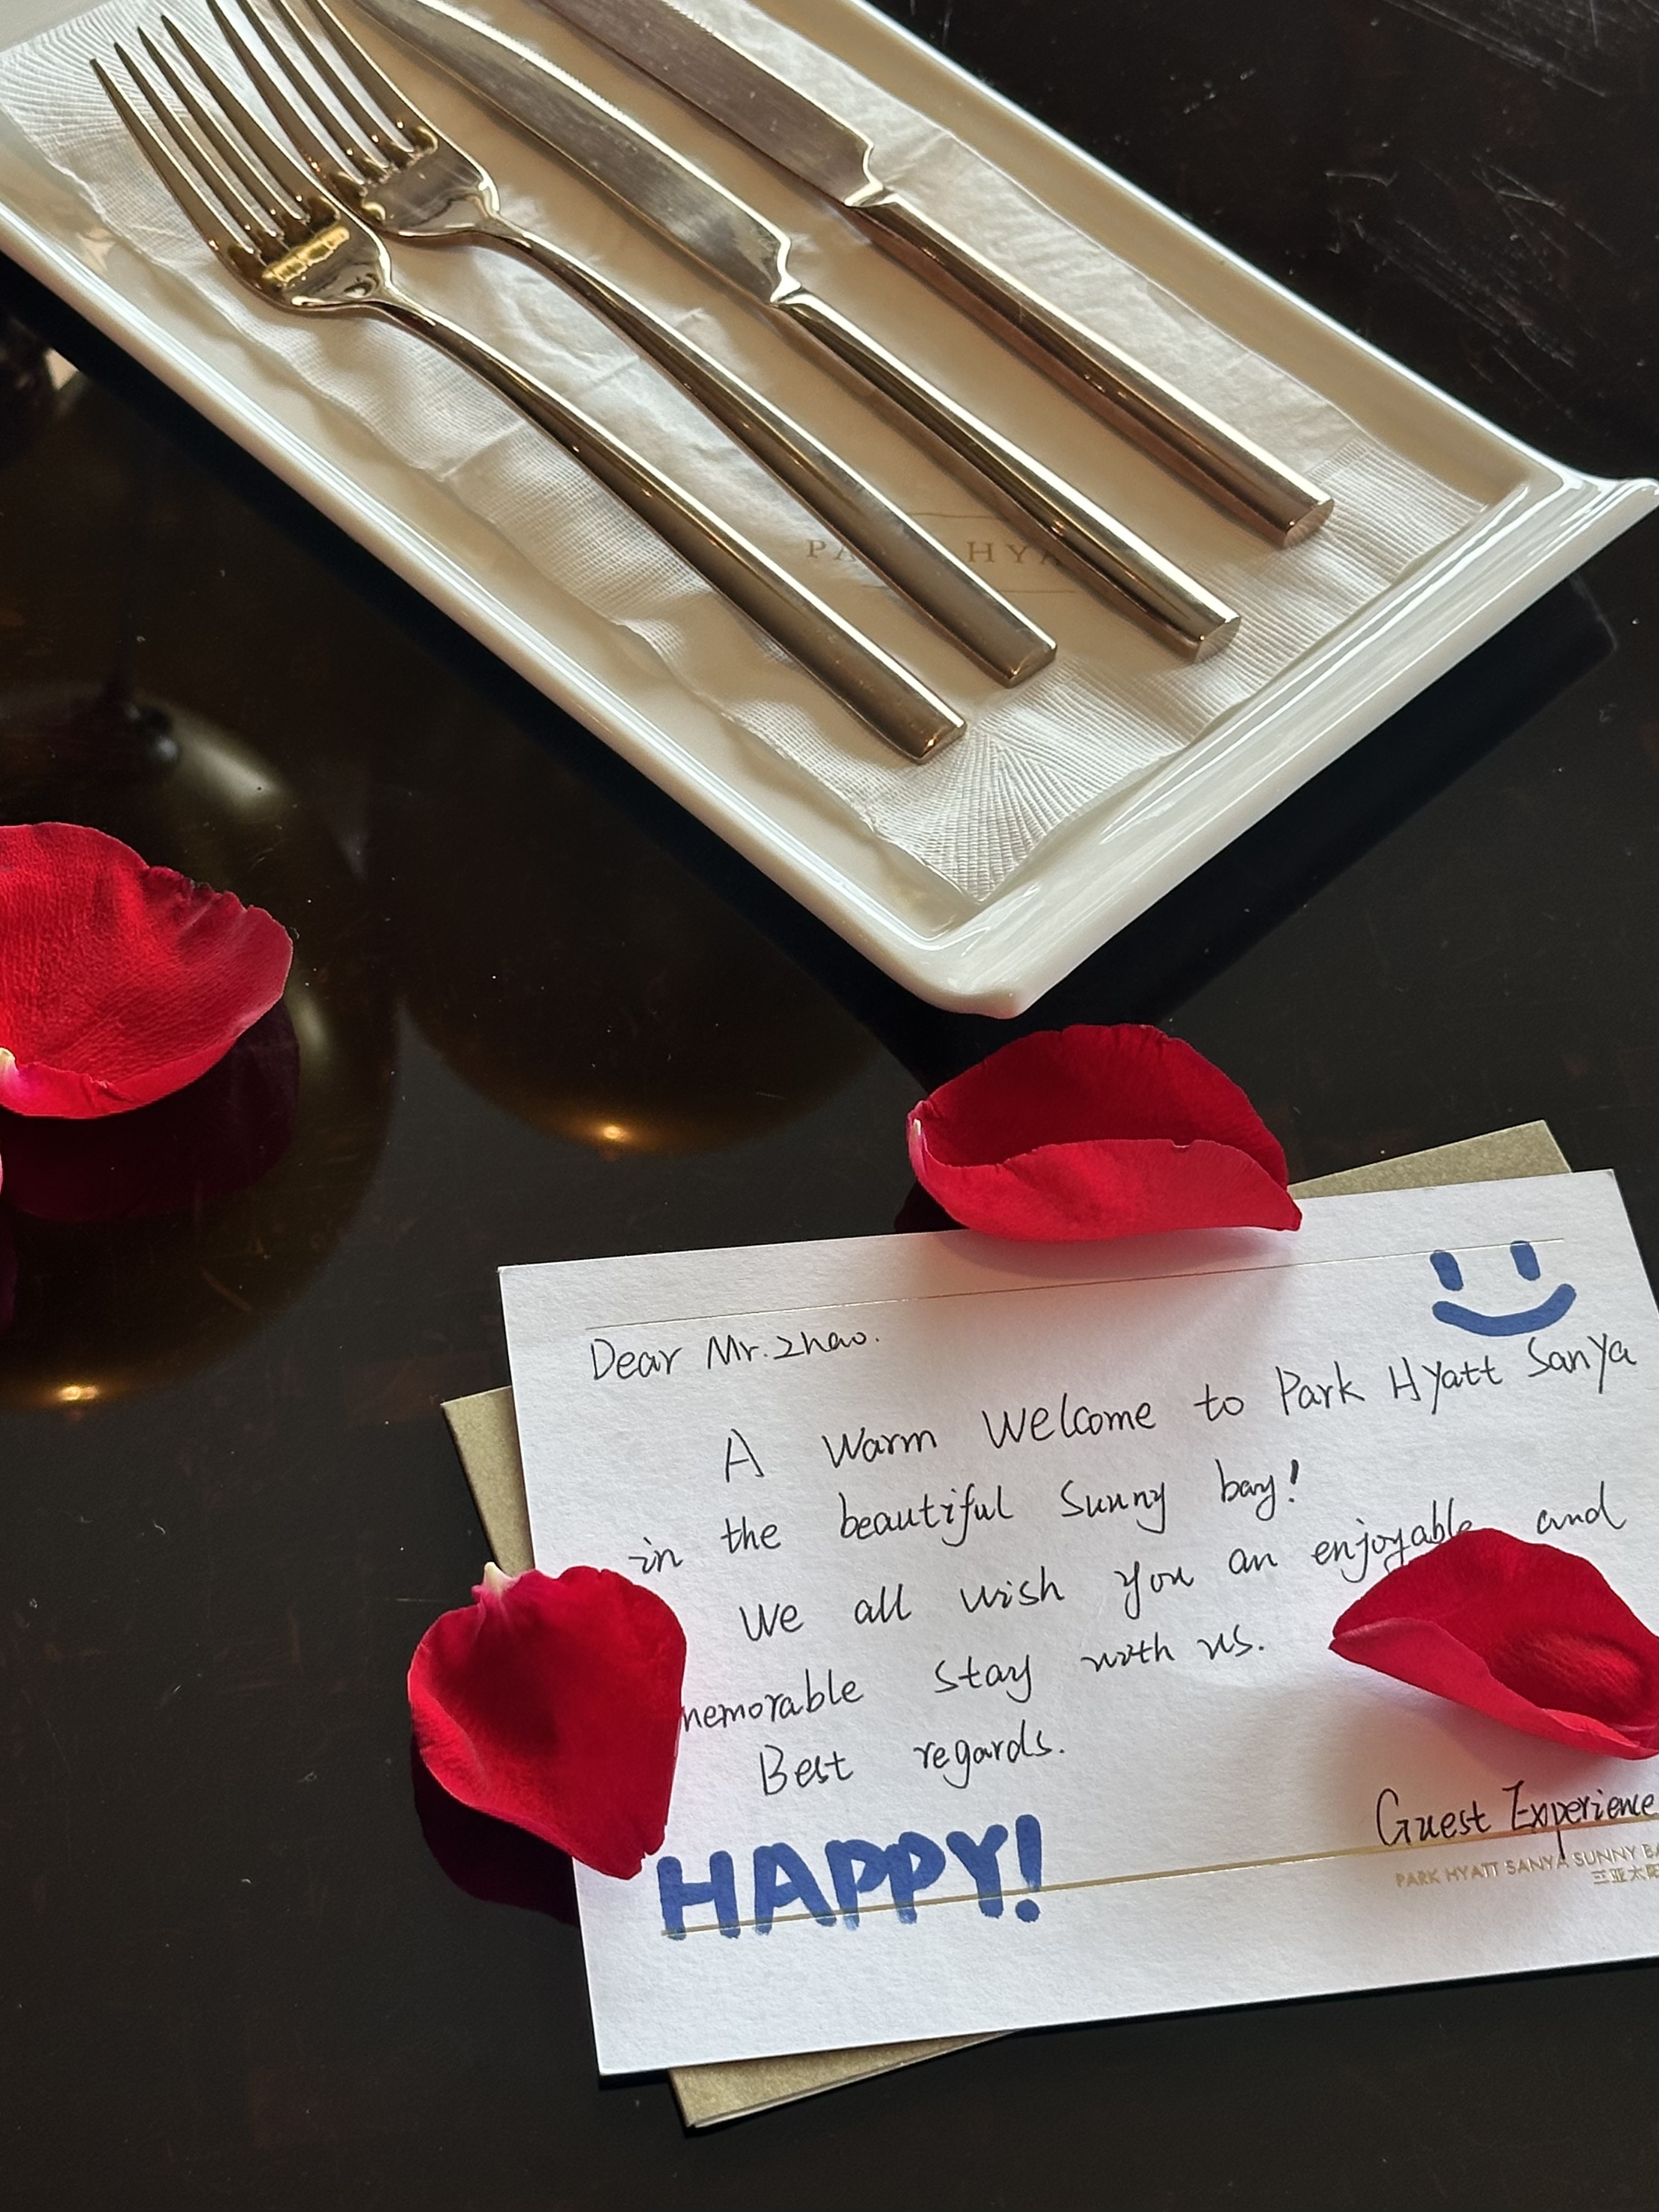 PA HYA
Dear Mr. Zhao.
A warm welcome to Park Hyatt Sanya
in the beautiful Sunny bay!
We all wish you an enjoyable and
memorable stay with us.
Best regards.
Guest Experience
HAPPY!
PARK HYATT SANYA SUNNY BA
三亚太阳